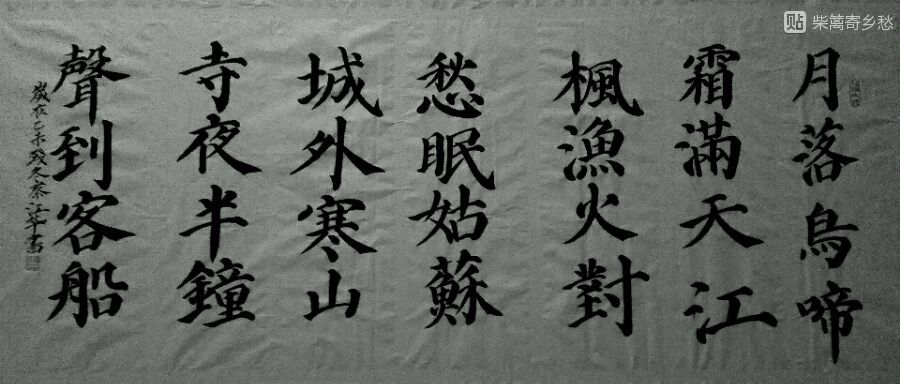 月落烏啼
霜滿天江
楓漁火對
愁眠姑蘇
城外寒山
寺夜半鐘
聲到客船
歲在乙未残冬江華書
贴 柴篱寄乡愁